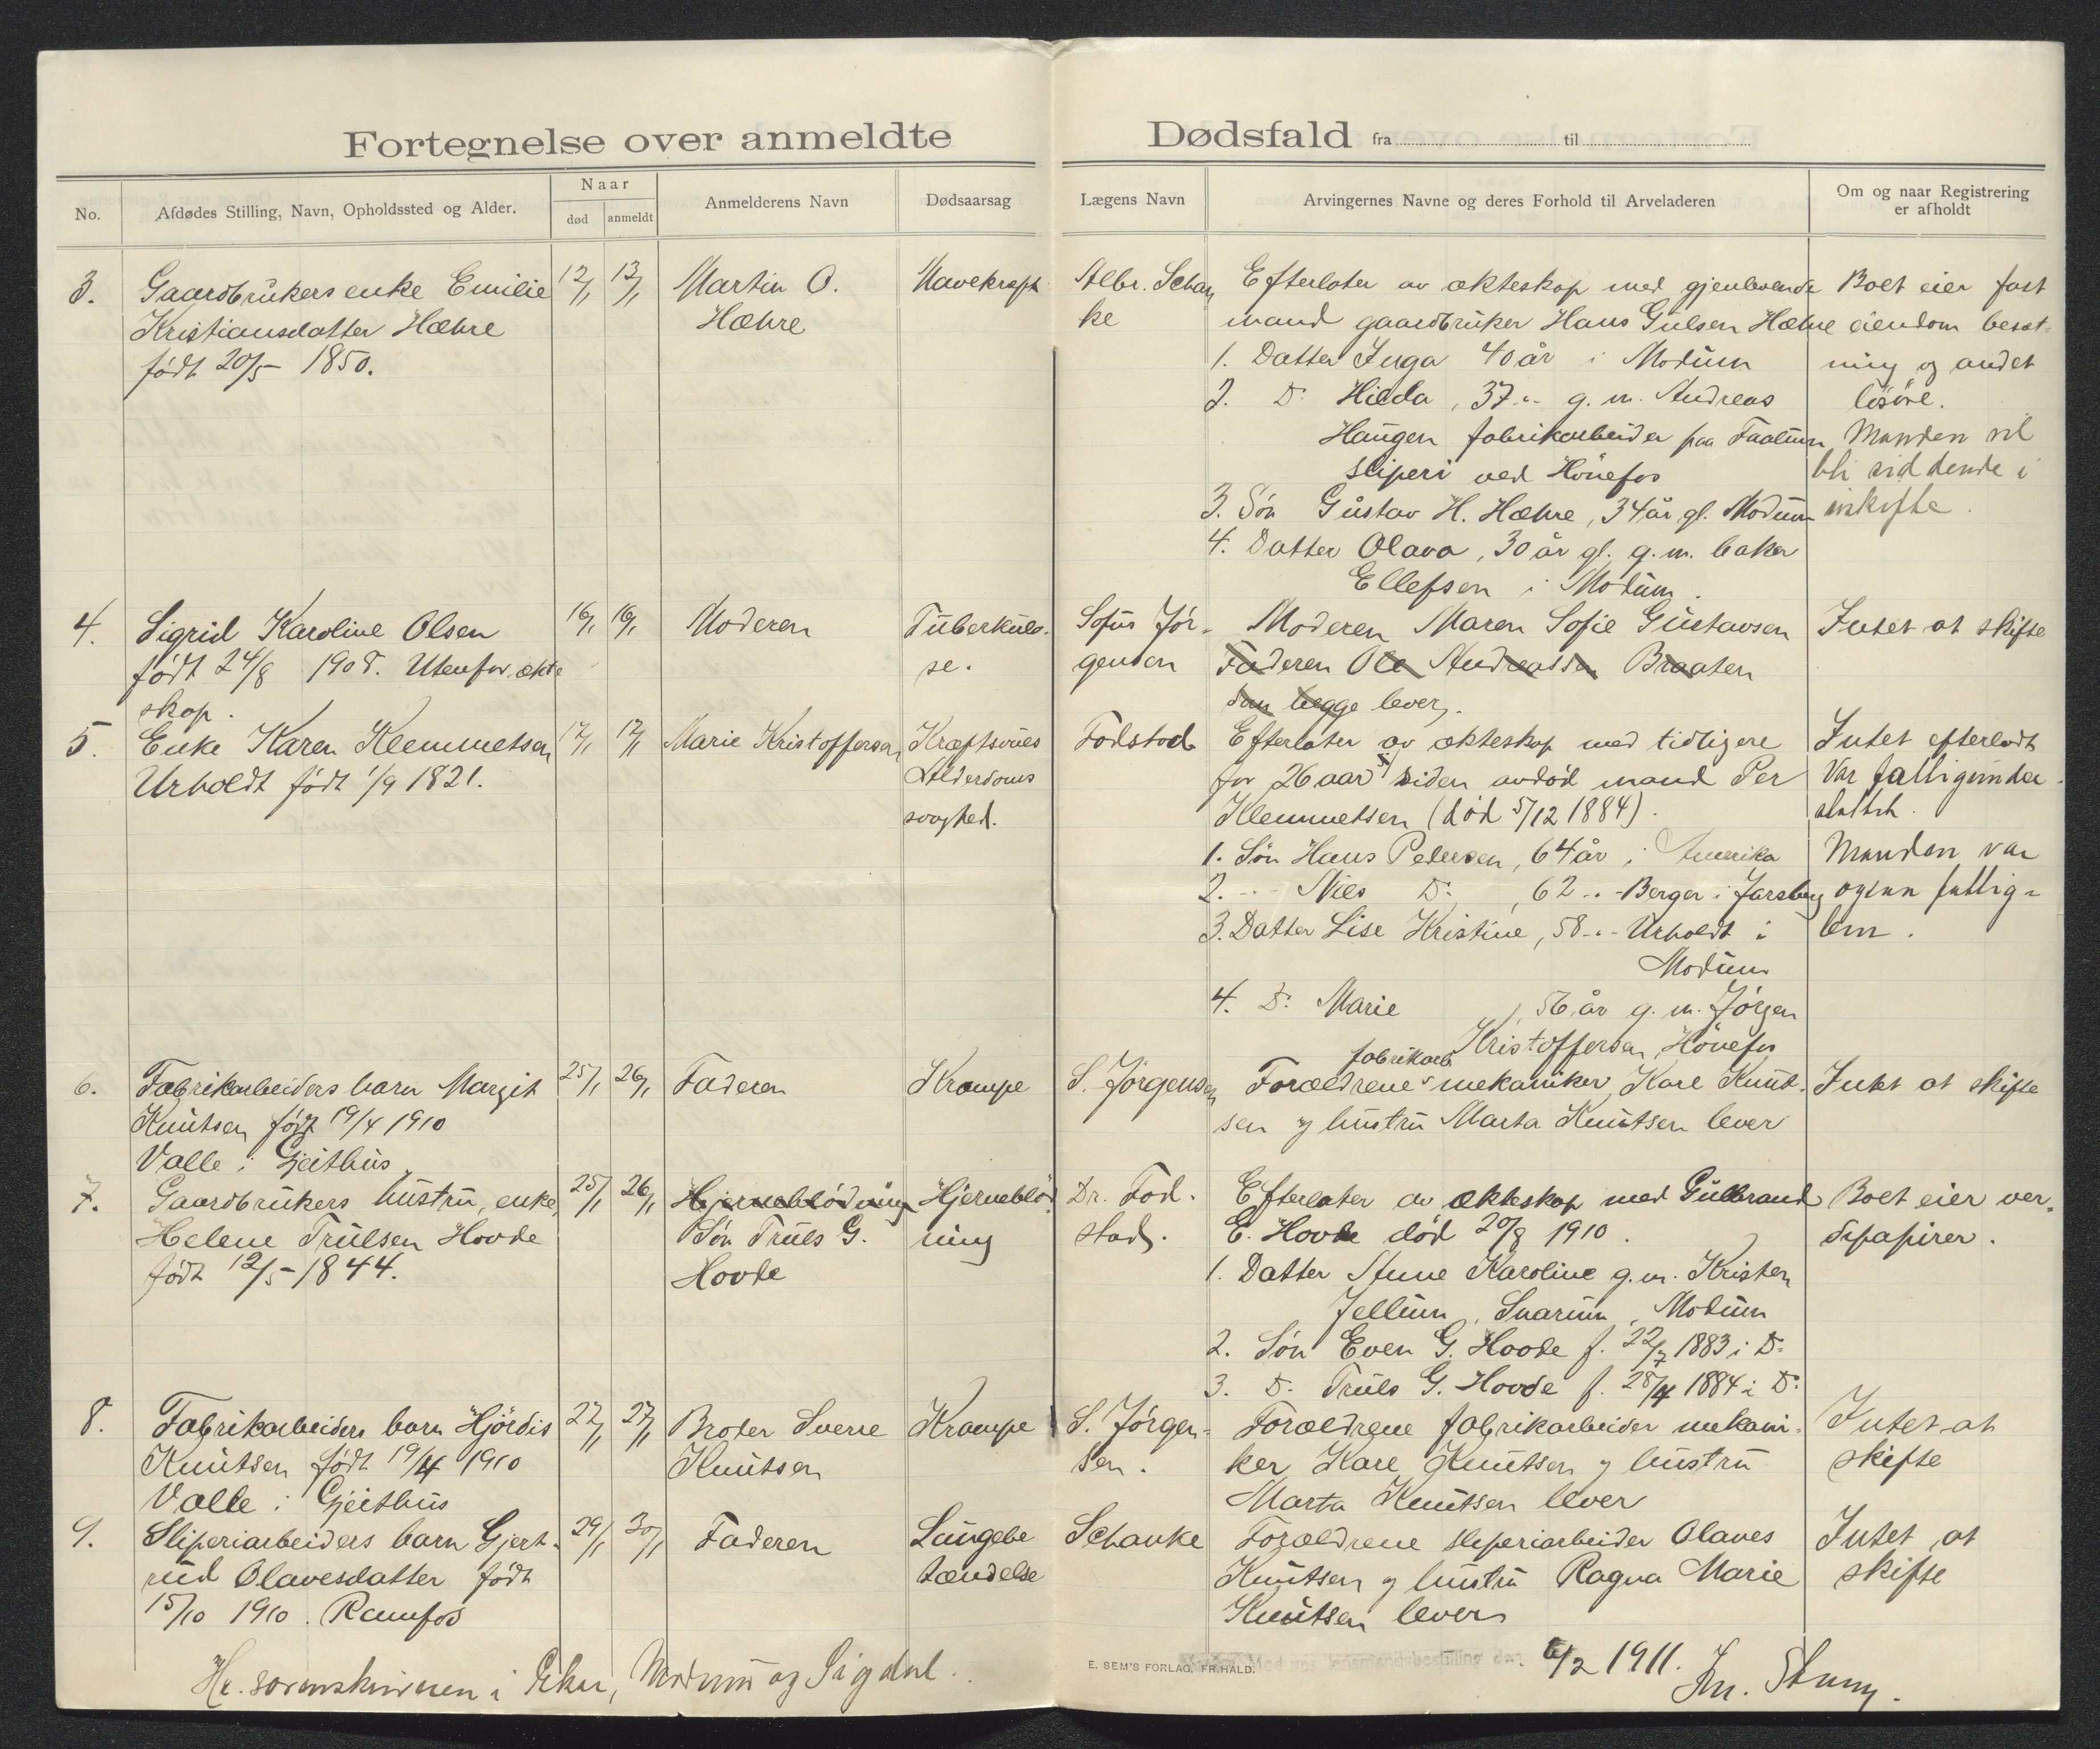 Fortegnelse over anmeldte Dødsfald fra til
No.
Afdødes Stilling, Navn, Opholdssted og Alder.
Naar
død
anmeldt
Anmelderens Navn
Dødsaarsag
Lægens Navn
Arvingernes Navne og deres Forhold til Arveladeren
Om og naar Registrering
er afholdt
3.
Gaardbrukers enke Emilie
Kristiansdatter Hæhre
født 20/5 1850.
12/1
13/1
Martin O.
Hæhre
Mavekræft
Albr. Schan
ke
Efterlater av ekteskap med gjenlevende
mand gaardbruker Hans Gulsen Hæhre
1. Datter Inga 40 år i Modum
2. Do Hilda, 37 " g. m. Andreas
Haugen fabrikarbeider paa
sliperi ved Hönefos
3. Søn Gustav H. Hæhre, 34 år gl. Modum
4. Datter Olava, 30 år gl. g. m. baker
Ellefsen i Modum.
Boet eier fast
eiendom besæt-
ning og andet
løsøre.
Manden vil
bli siddende i
uskifte.
4.
Sigrid Karoline Olsen
født 24/8 1908. Utenfor ekte
skap.
16/1
16/1
Moderen
Tuberkulo-
se.
Sofus Jør-
gensen
Moderen Maren Sofie Gustavsen
Faderen Ole Andreassen Braaten
som begge lever.
Intet at skifte
5.
Enke Karen Klemmetsen
Urholdt født 1/9 1821.
17/1
17/1
Marie Kristoffersen
Kræftsvues
Alderdoms
svaghed.
Fodstad
Efterlater av ekteskap med tidligere
for 26 aar siden avdød mand Per
Klemmetsen (død 5/12 1884).
1. Søn Hans Pedersen, 64 år i Amerika
2. " Nils Do, 62 " Berger i Jarsberg
3. Datter Lise Kristine, 58 " Urholdt i
Modum
4. Do Marie, 56 år g. m. Jörgen
Kristoffersen, Hönefos
Intet efterladt
Var fattigunder-
støttet.
Manden var
ogsaa fattig-
lem.
6.
Fabrikarbeiders barn Margit
Knutsen født 19/4 1910
Valle i Gjeithus
25/1
26/1
Faderen
Krampe
S. Jörgensen
fabrikarb.
Forældrene mekaniker Kare Knut-
sen og hustru Marta Knutsen lever
Intet at skifte
7.
Gaardbrukers hustru, enke,
Helene Trulsen Hovde
født 12/5 1844.
25/1
26/1
Hjerneblödning
Søn Truls G.
Hovde
Hjerneblød-
ning
Dr. Fod-
stad.
Efterlater av ekteskap med Gulbrand
E. Hovde død 20/8 1910.
1. Datter Anne Karoline g. m. Kristen
Jellum, Snarum, Modum
2. Søn Even G. Hovde f. 22/7 1883 i Do
3. Do Truls G. Hovde f. 28/4 1884 i Do
Boet eier ver-
dipapirer.
8.
Fabrikarbeiders barn Hjördis
Knutsen født 19/4 1910
Valle i Gjeithus
27/1
27/1
Broder Sverre
Knutsen
Krampe
S. Jörgen-
sen.
Forældrene fabrikarbeider mekani-
ker Kare Knutsen og hustru
Marta Knutsen lever
Intet at
skifte
9.
Sliperiarbeiders barn Gjert-
rud Olavesdatter født
15/10 1910. Ramfos
29/1
30/1
Faderen
Lungebe
tændelse
Schanke
Forældrene sliperiarbeider Olaves
Knutsen og hustru Ragna Marie
Knutsen lever
Intet at
skifte
Hr. sorenskriveren i Eker, Modum og Sigdal.
E. SEM'S FORLAG, FR.HALD.
6/2 1911.